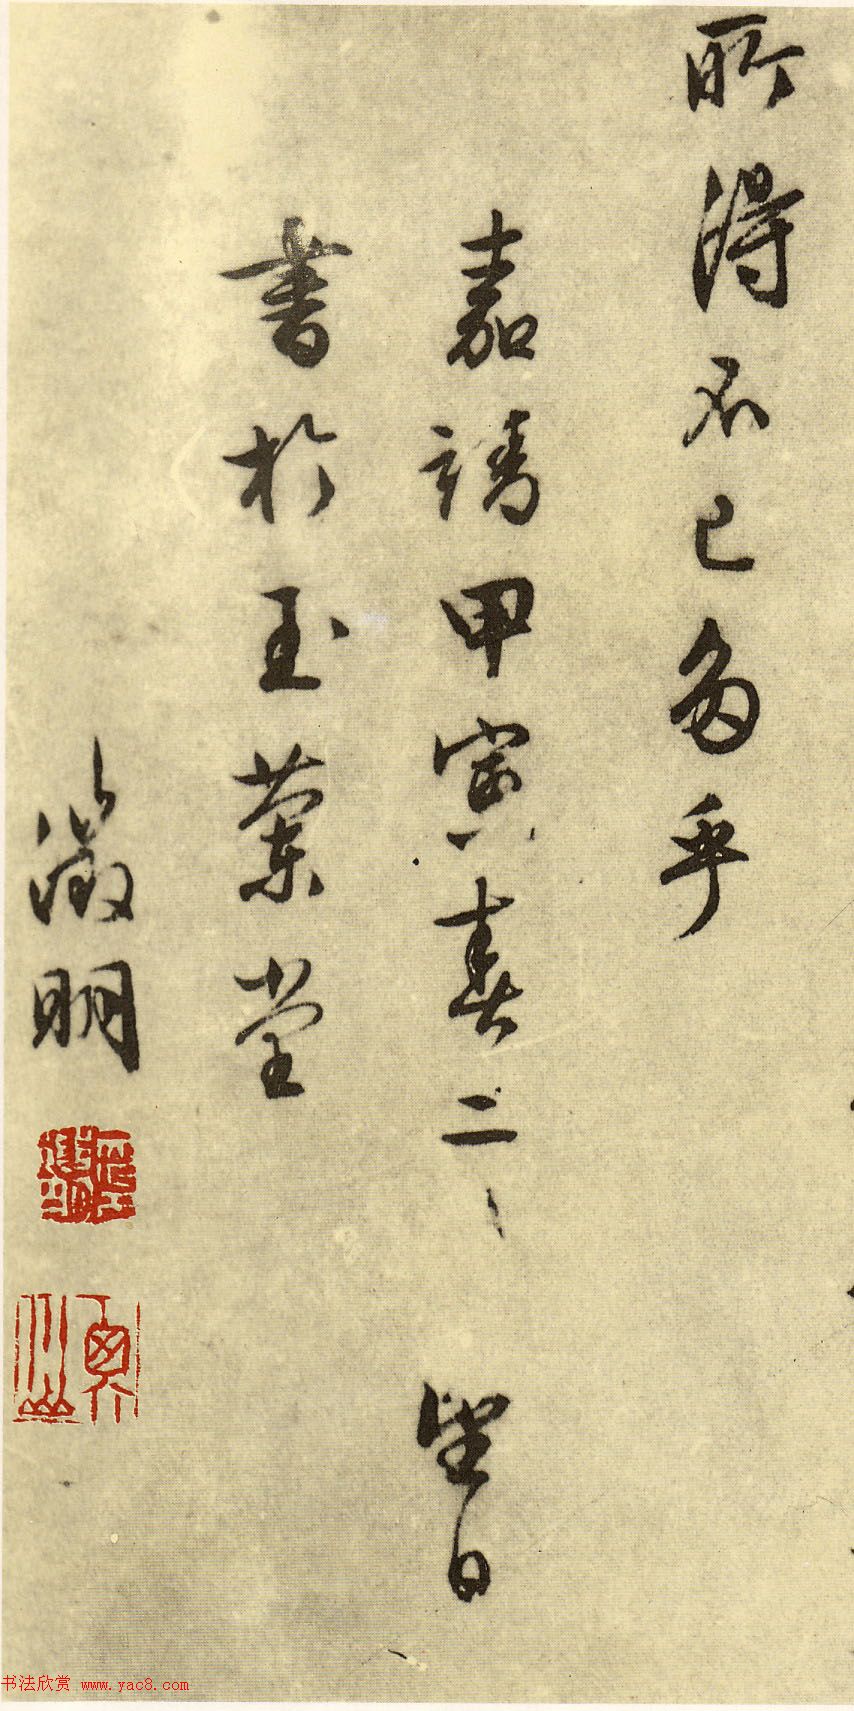 所得不已多乎
嘉靖甲寅春二 望日
書於玉蘭堂
徵明
書法欣赏 www.yac8.com